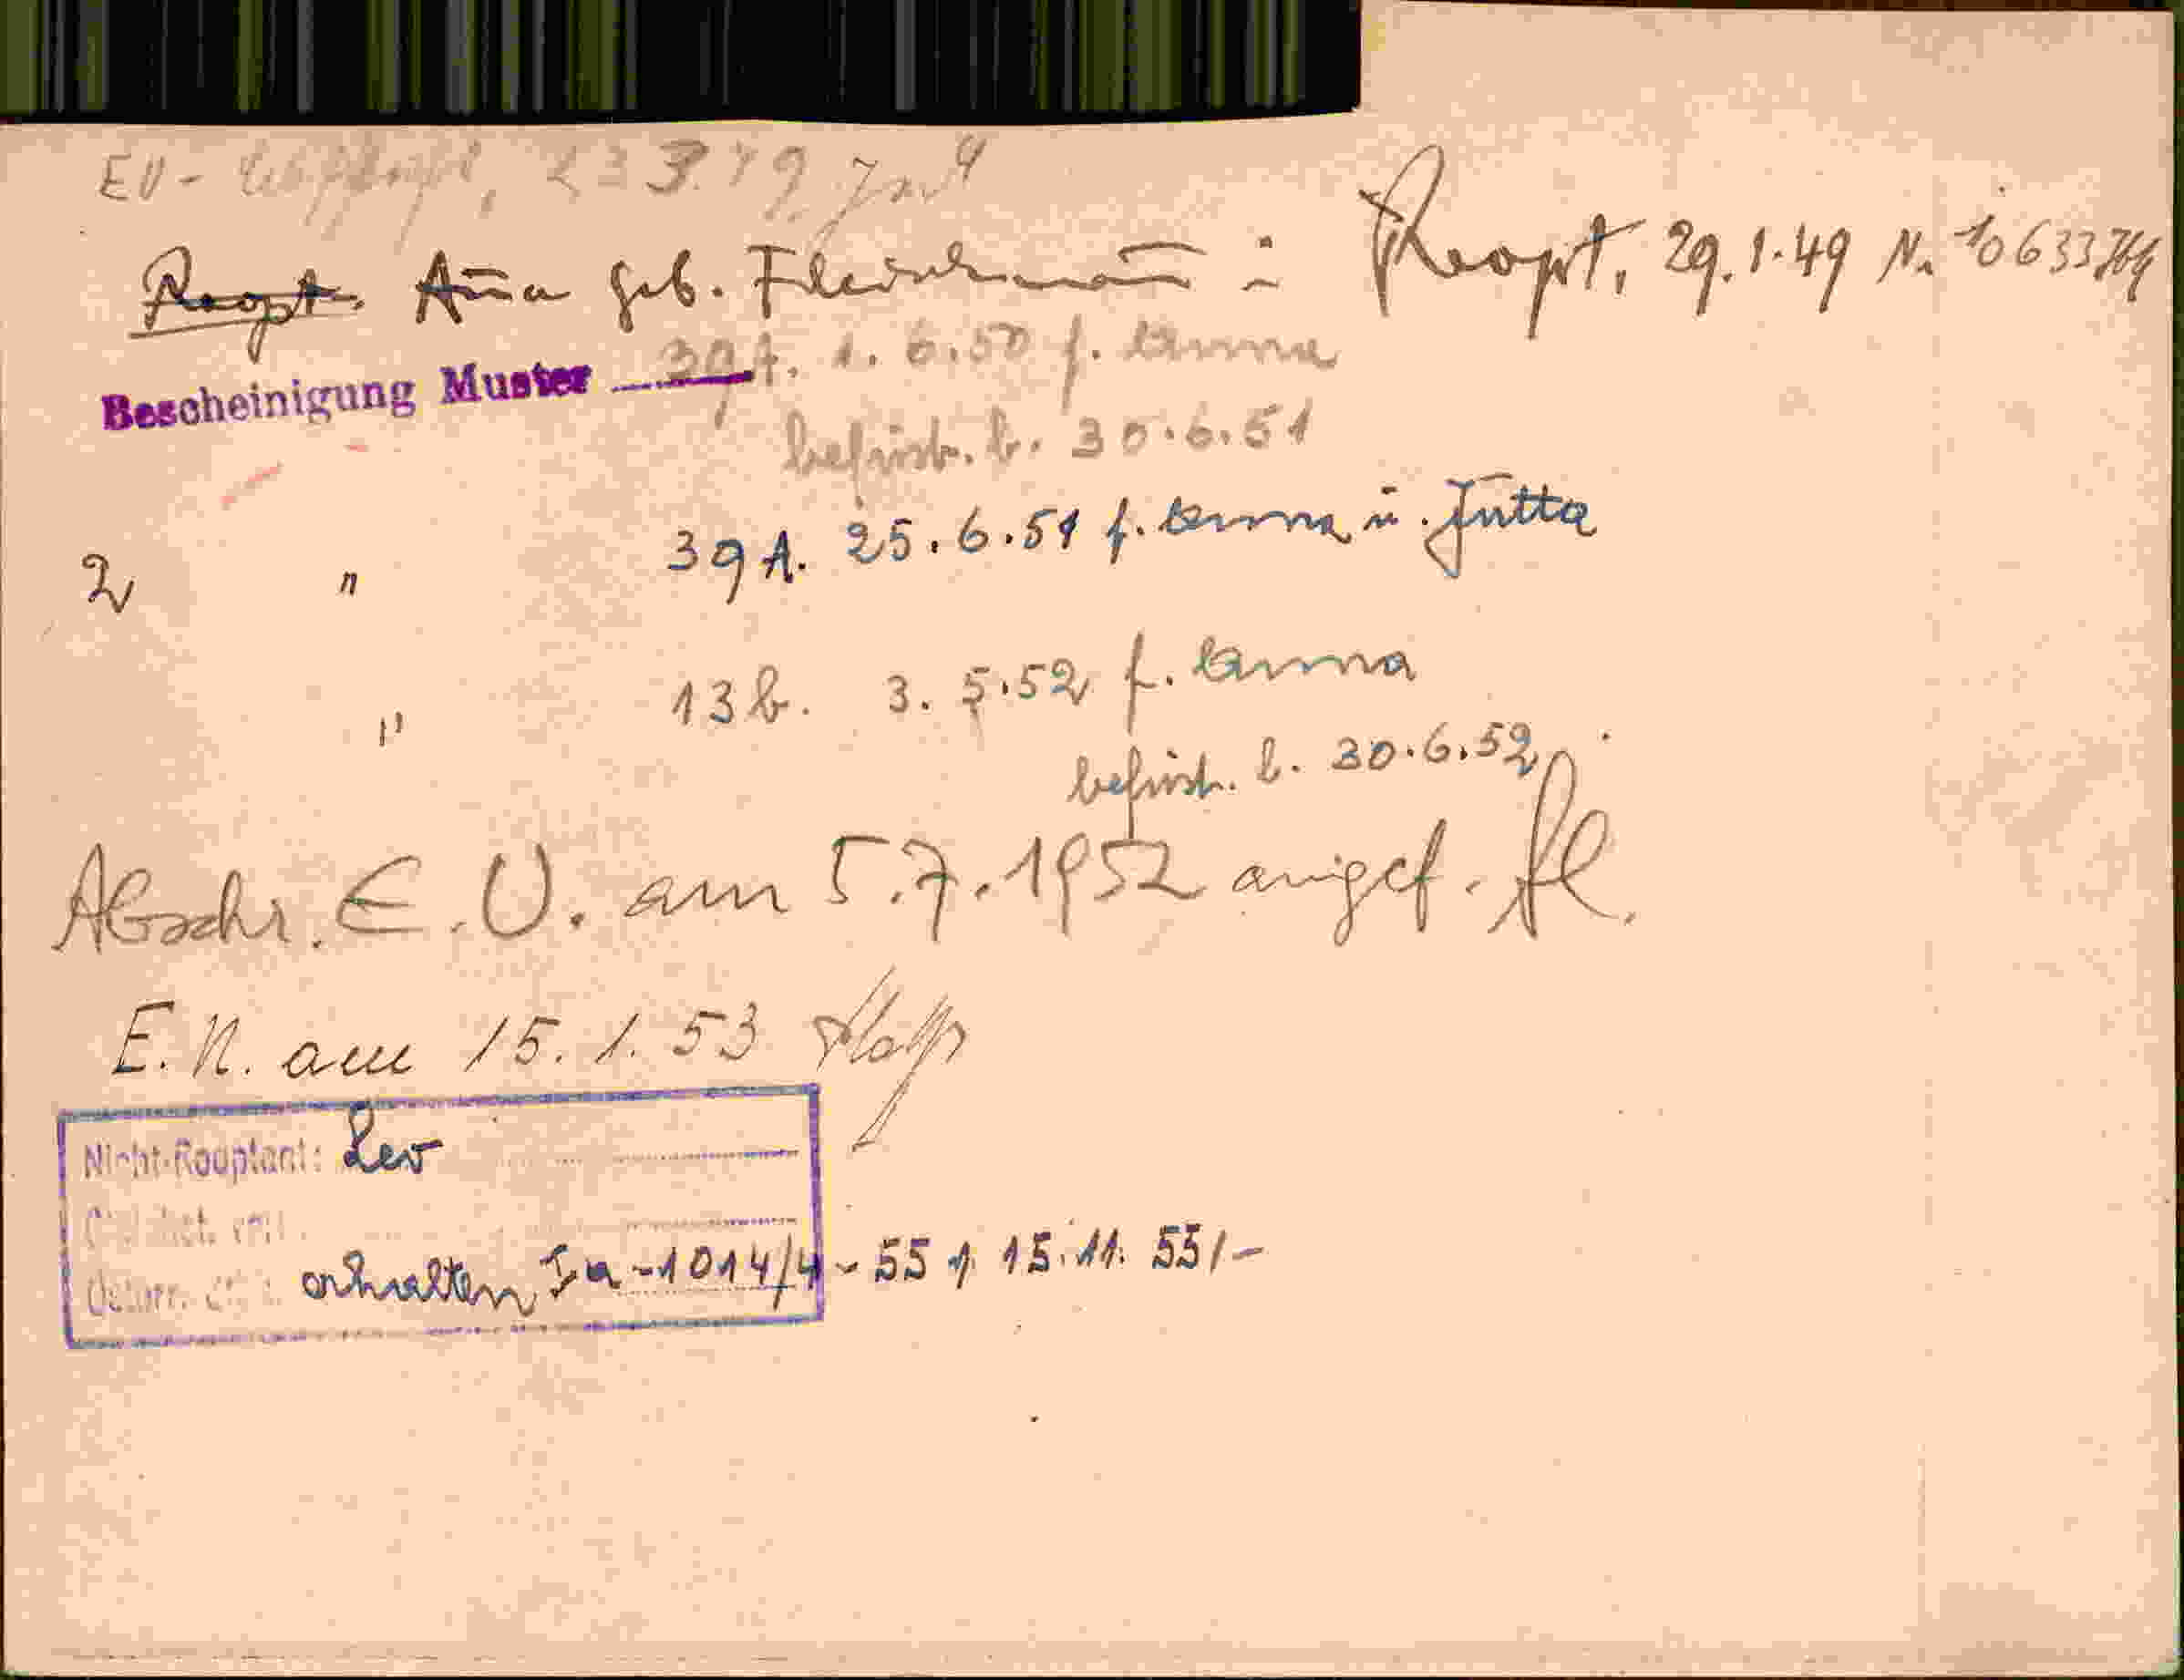 EV-
Reopt. Aña geb. Fleischmañ : Reopt. 29.1.49 Nr. 10633764
Bescheinigung Muster 39A. 1. 6.50 f. Anna
befrist. b. 30.6.51
2 " 39A. 25.6.51 f. Anna u. Jutta
" 13b. 3. 5.52 f. Anna
befrist. b. 30.6.52
Abschr. E.V. am 5.7.1952 angef.
E.N. am 15.1.53
Nicht-Rouptant: Rev
erhalten Ia-1014/4-55 v. 15.11.55/-